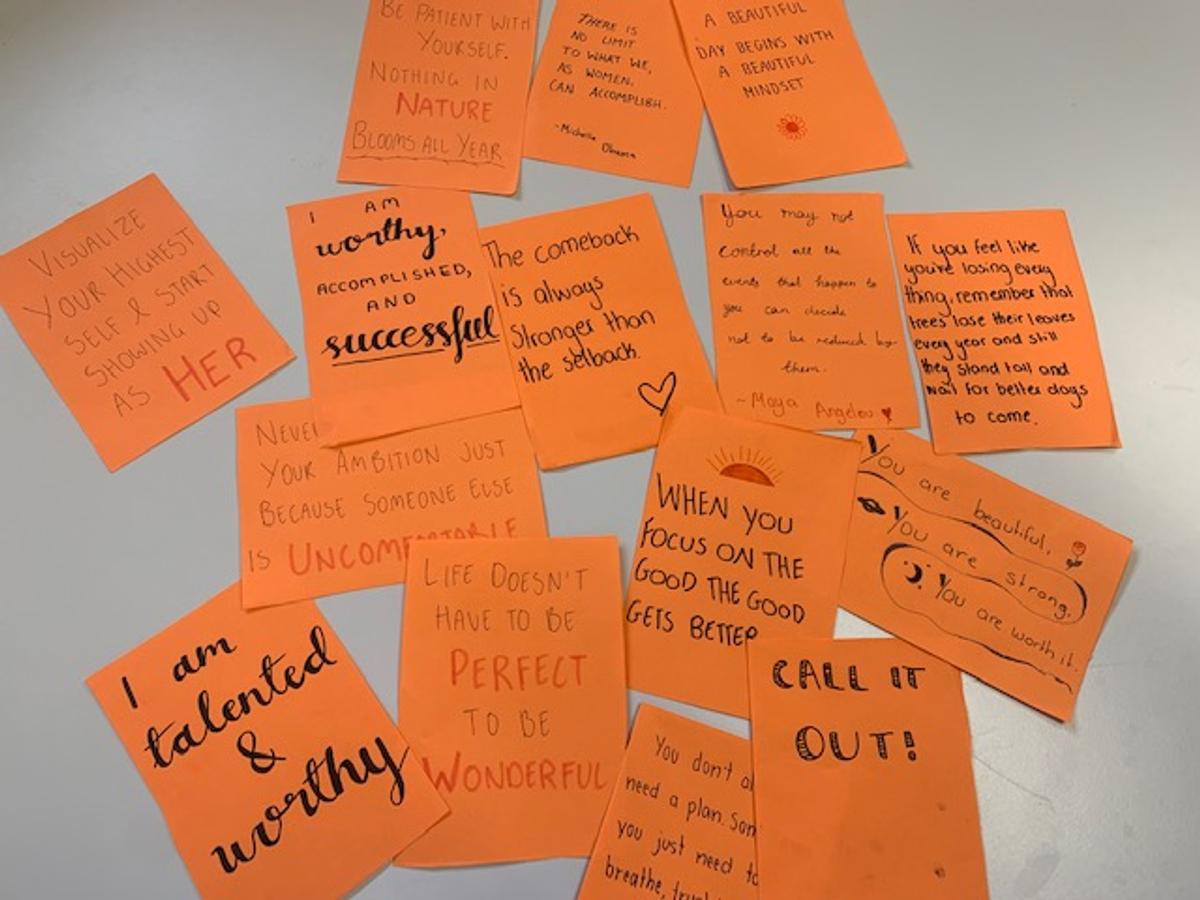 BE PATIENT WITH
YOURSELF.
NOTHING IN
NATURE
BLOOMS ALL YEAR
THERE IS
NO LIMIT
TO WHAT WE,
AS WOMEN,
CAN ACCOMPLISH.
-Michelle
Obama
A BEAUTIFUL
DAY BEGINS WITH
A BEAUTIFUL
MINDSET
VISUALIZE
YOUR HIGHEST
SELF & START
SHOWING UP
AS HER
I AM
worthy,
ACCOMPLISHED,
AND
successful
The comeback
is always
Stronger than
the setback.
You may not
control all the
events that happen to
you can decide
not to be reduced by
them.
~Maya Angelou
If you feel like
you're losing every
thing, remember that
trees lose their leaves
every year and still
they stand tall and
wait for better days
to come.
NEVER
YOUR AMBITION JUST
BECAUSE SOMEONE ELSE
IS UNCOMFORTABLE
WHEN YOU
FOCUS ON THE
GOOD THE GOOD
GETS BETTER
You are beautiful.
You are strong.
You are worth it.
I am
talented
&
worthy
LIFE DOESN'T
HAVE TO BE
PERFECT
TO BE
WONDERFUL
You don't al
need a plan. Som
you just need to
breathe,
CALL IT
OUT!